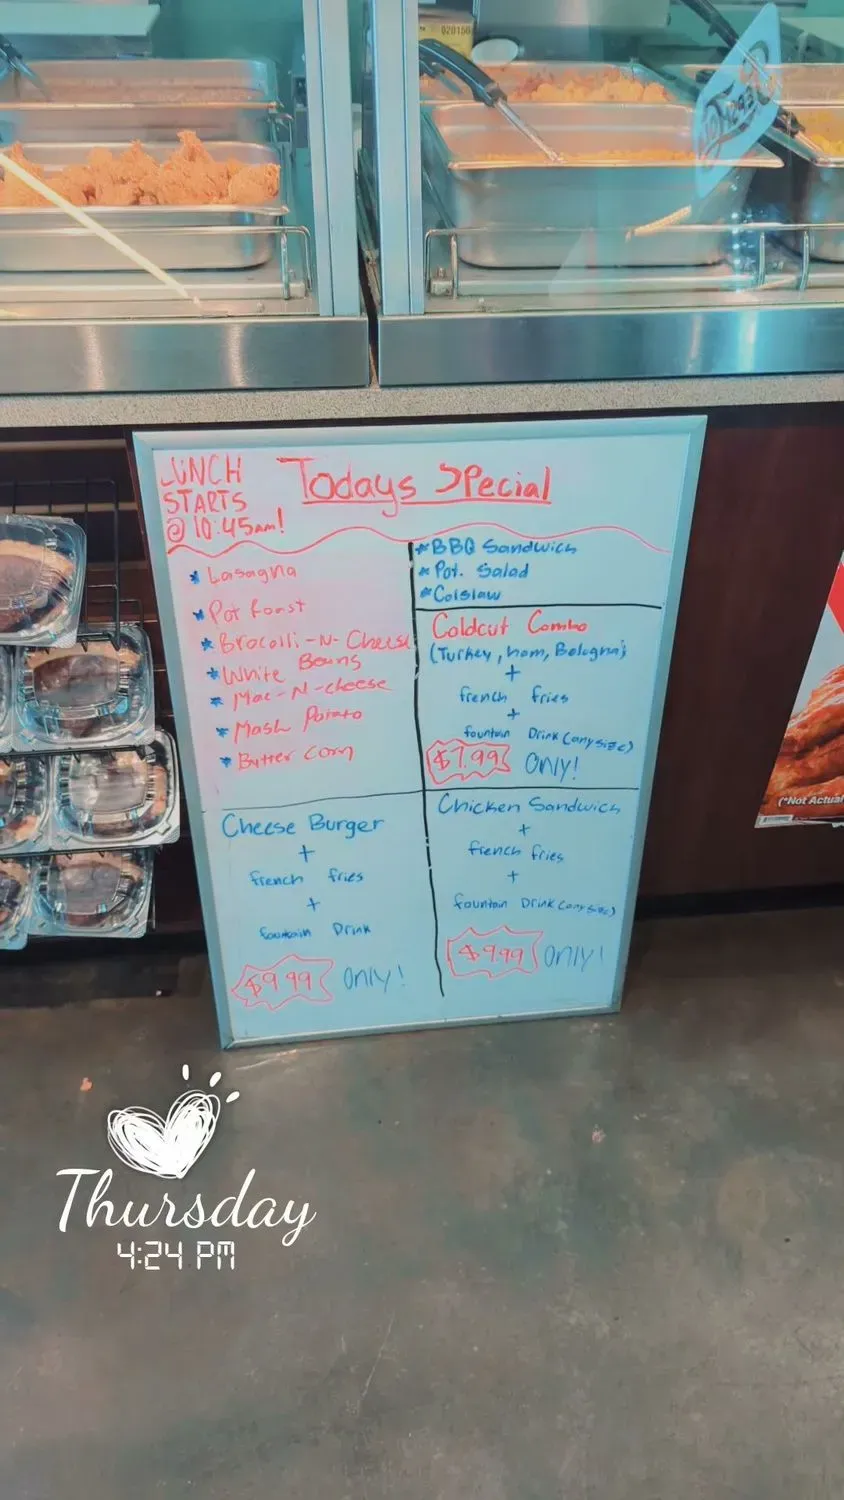 020150
LUNCH
STARTS
@ 10:45am!
Todays Special
* Lasagna
* Pot Roast
* Brocolli-N-Cheese
* White Beans
* Mac-N-cheese
* Mash Potato
* Butter Corn
* BBQ Sandwich
* Pot. Salad
* Colslaw
Coldcut Combo
(Turkey, ham, Bologna)
+
french fries
+
fountain Drink (any size)
$7.99 ONLY!
Cheese Burger
+
french fries
+
fountain Drink
$9.99 ONLY!
Chicken Sandwich
+
french fries
+
fountain Drink (any size)
$9.99 ONLY!
(*Not Actual
Thursday
4:24 PM